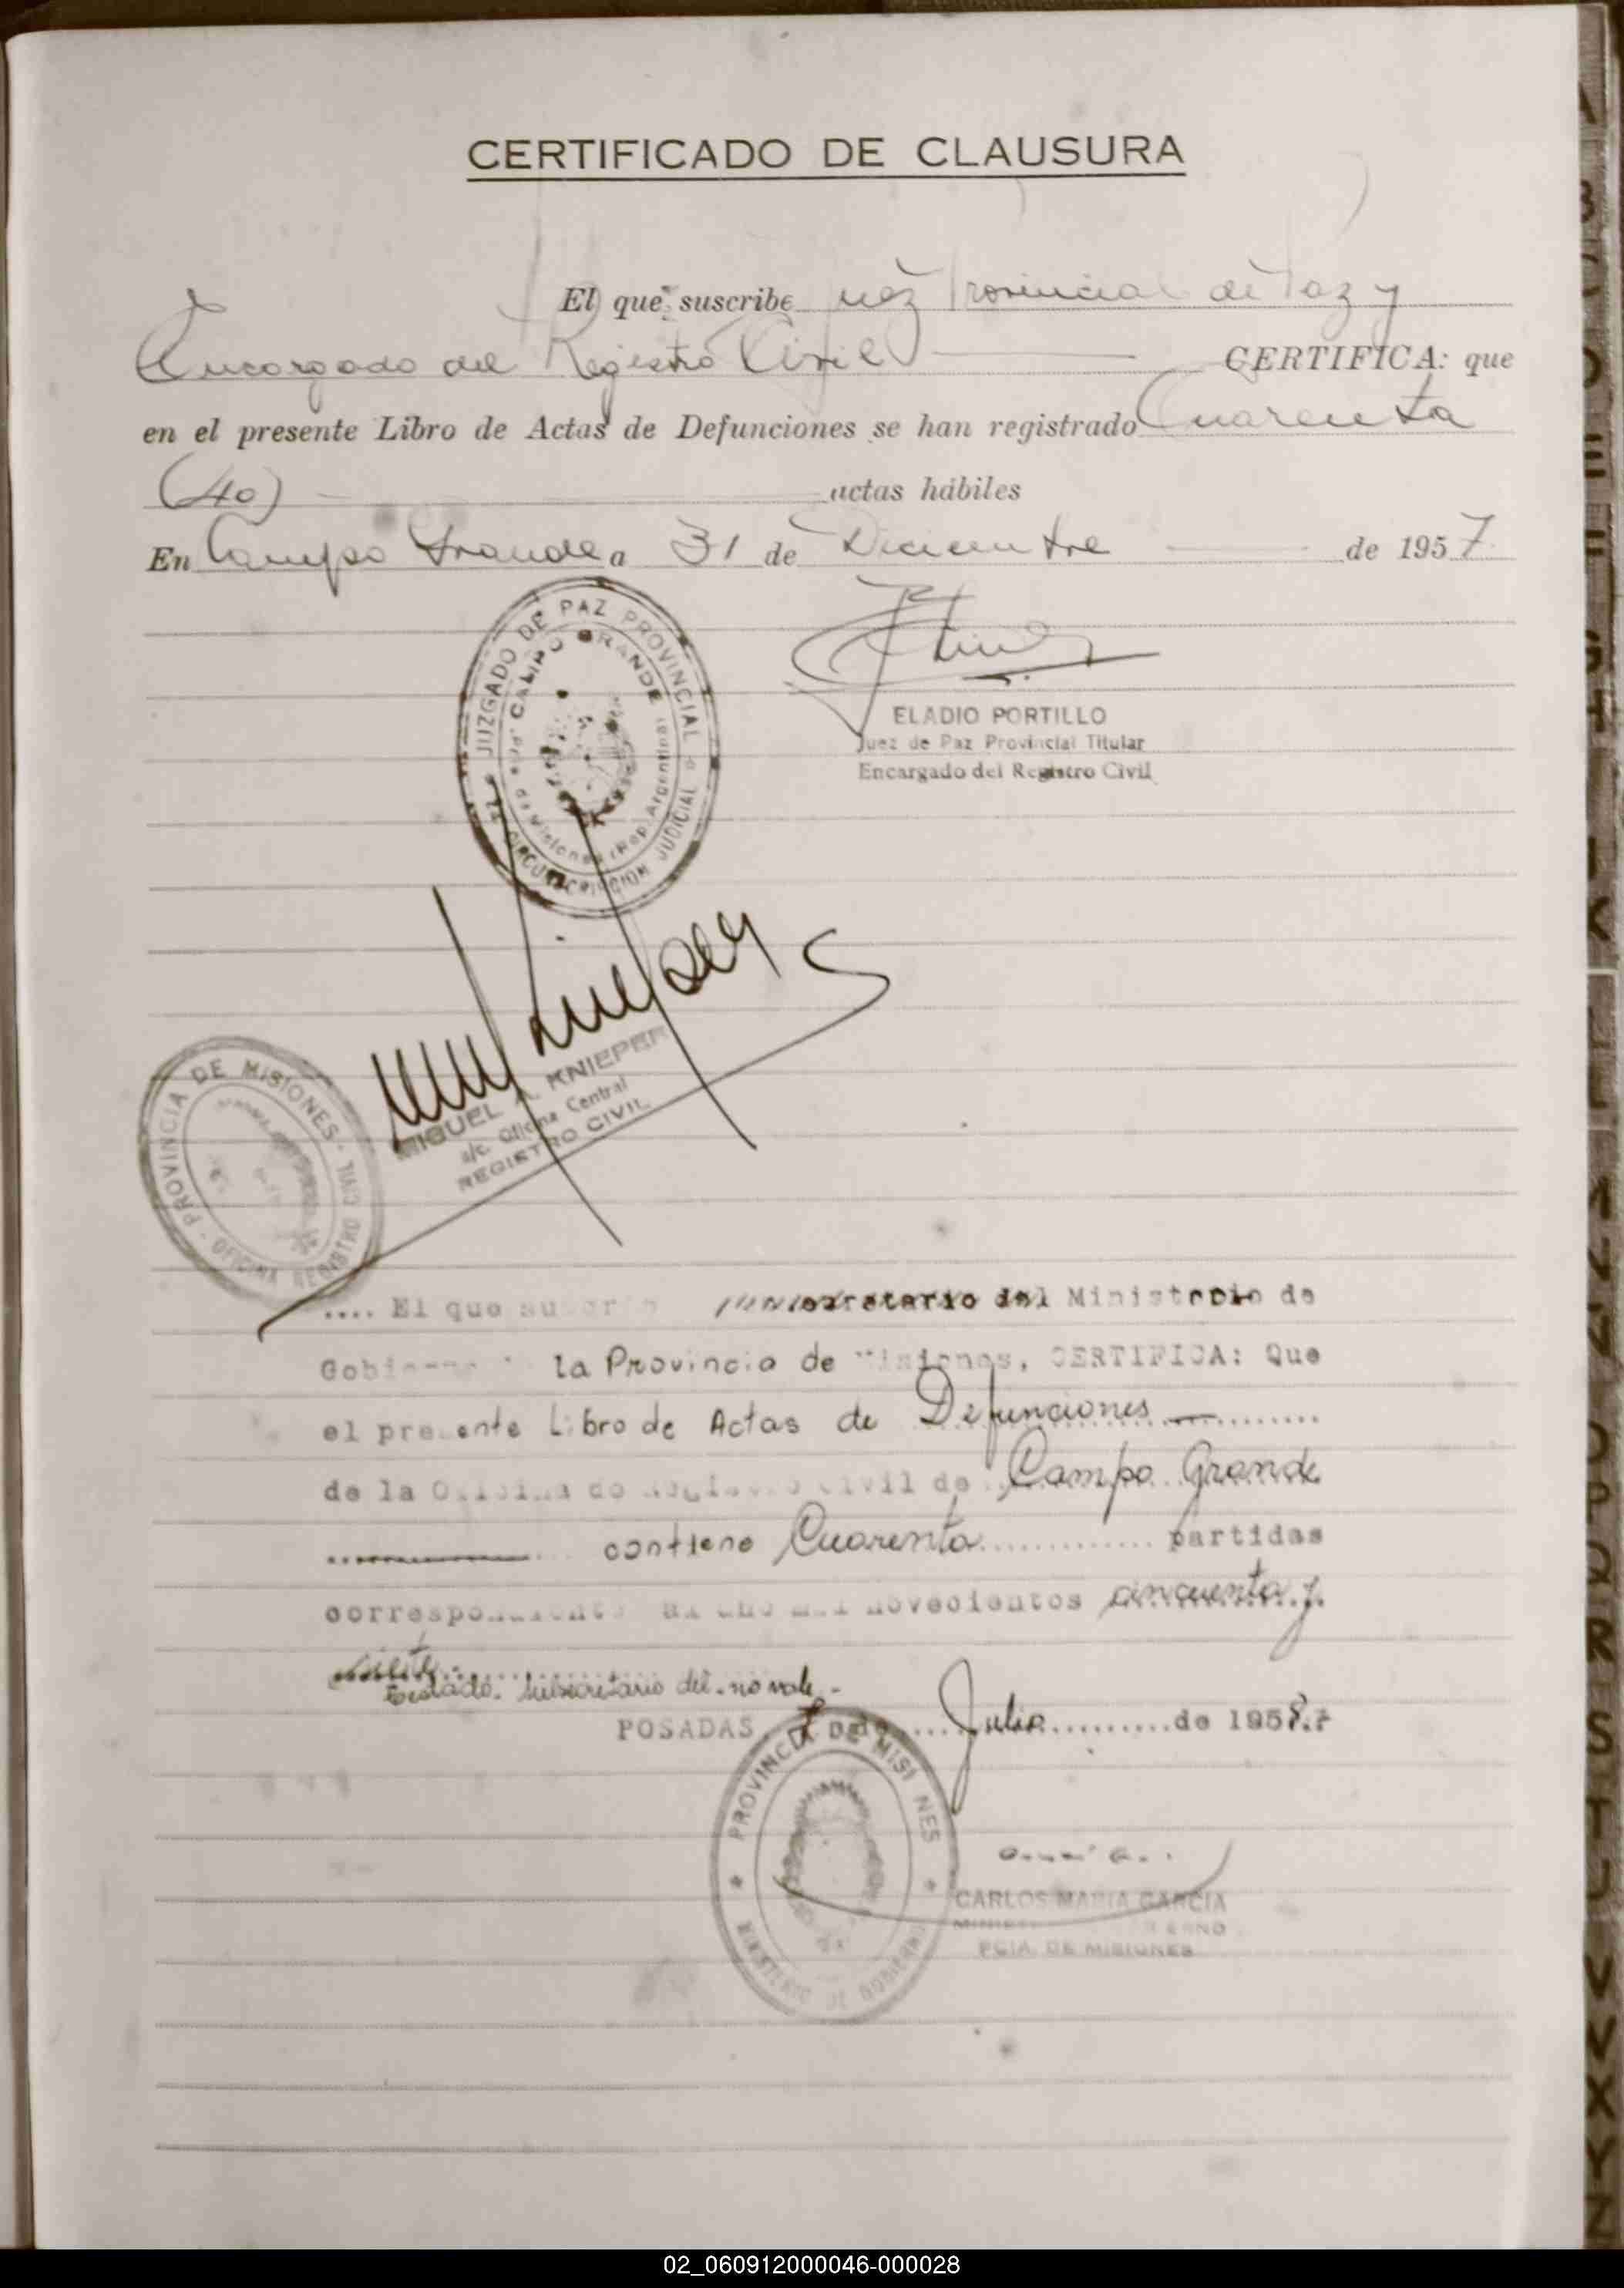 CERTIFICADO DE CLAUSURA
El que suscribe Juez Provincial de Paz y
Encargado del Registro Civil CERTIFICA: que
en el presente Libro de Actas de Defunciones se han registrado Cuarenta
(40) actas hábiles
En Campo Grande a 31 de Diciembre de 1957
JUZGADO DE PAZ PROVINCIAL
CAMPO GRANDE
de Misiones (Rep. Argentina)
CIRCUNSCRIPCION JUDICIAL
ELADIO PORTILLO
Juez de Paz Provincial Titular
Encargado del Registro Civil
MIGUEL A. KNIEPER
a/c. Oficina Central
REGISTRO CIVIL
PROVINCIA DE MISIONES
OFICINA REGISTRO CIVIL
.... El que subsecretario del Ministerio de
la Provincia de Misiones, CERTIFICA: Que
el presente Libro de Actas de Defunciones
de la Oficina de Registro Civil de Campo Grande
contiene Cuarenta partidas
correspondiente al año mil novecientos cincuenta y
siete
Testado: subsecretario del. no vale.-
POSADAS, de Julio de 1958.-
PROVINCIA DE MISIONES
MINISTERIO DE GOBIERNO
CARLOS MARIA GARCIA
PCIA. DE MISIONES
A
B
C
D
E
K
P
Q
R
S
T
U
V
X
Y
Z
02_060912000046-000028